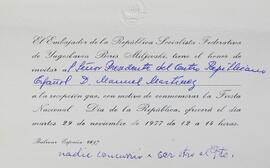 El Embajador de la República Socialista Federativa
de Yugoslavia Boris Miljovski, tiene el honor de
invitar al Señor Presidente del Centro Republicano
Español D. Manuel Martínez
a la recepción que, con motivo de conmemorar la Fiesta
Nacional - Día de la República, ofrecerá el día
martes 29 de noviembre de 1977 de 12 a 14 horas.
nadie concurrio